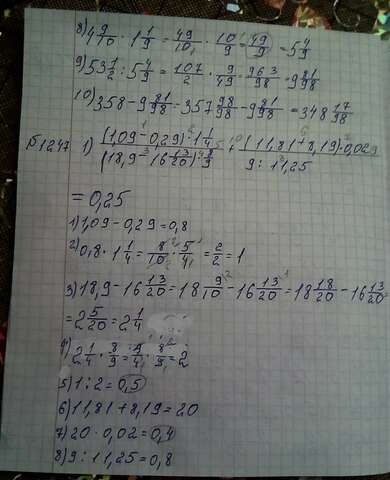 8) 4 9/10 · 1 1/9 = 49/10 · 10/9 = 49/9 = 5 4/9
9) 53 1/2 : 5 4/9 = 107/2 · 9/49 = 963/98 = 9 81/98
10) 358 - 9 81/98 = 357 98/98 - 9 81/98 = 348 17/98
Б1247 1) (1,09 - 0,29) · 1 1/4 / (18,9 - 16 13/20) · 8/9 + (11,81 + 8,19) · 0,02 / 9 : 11,25
= 0,25
1) 1,09 - 0,29 = 0,8
2) 0,8 · 1 1/4 = 8/10 · 5/4 = 2/2 = 1
3) 18,9 - 16 13/20 = 18 9/10 - 16 13/20 = 18 18/20 - 16 13/20
= 2 5/20 = 2 1/4
4) 2 1/4 · 8/9 = 9/4 · 8/9 = 2
5) 1 : 2 = 0,5
6) 11,81 + 8,19 = 20
7) 20 · 0,02 = 0,4
8) 9 : 11,25 = 0,8